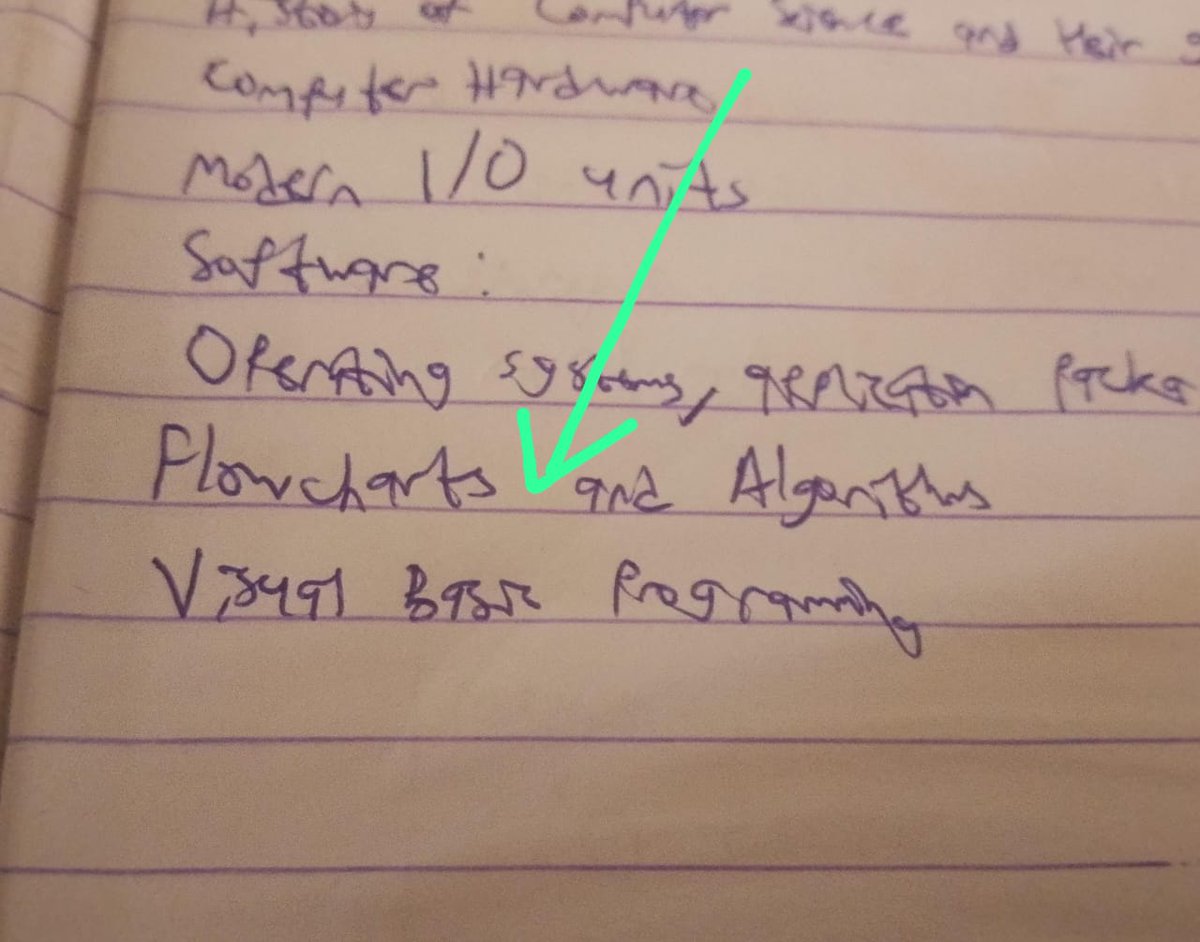 History of Computer Science and their
Computer Hardware
Modern I/O units
Software :
Operating systems, application
Flowcharts and Algorithms
Visual Basic Programming